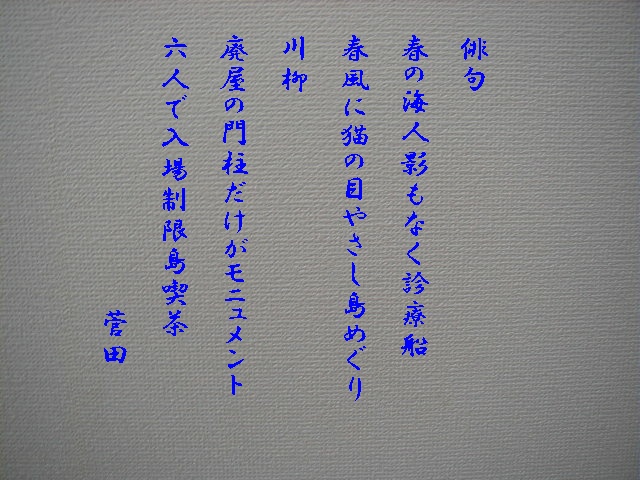 俳句
春の海人影もなく診療船
春風に猫の目やさし島めぐり
川柳
廃屋の門柱だけがモニュメント
六人で入場制限島喫茶
菅田